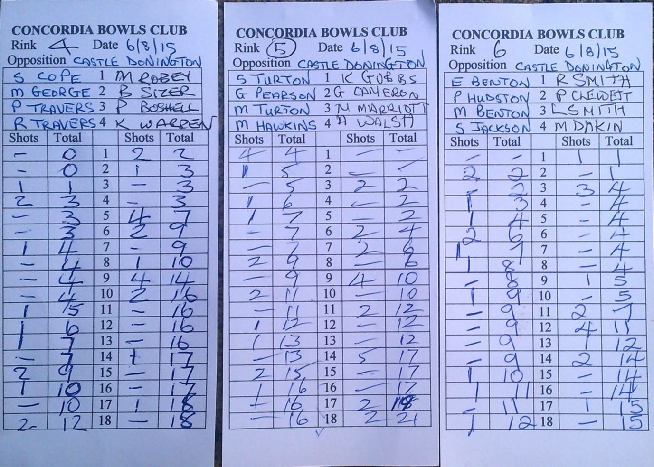 CONCORDIA BOWLS CLUB
Rink 4 Date 6/8/15
Opposition CASTLE DONINGTON
S COPE 1 M ROBEY
M GEORGE 2 B SIZER
P TRAVERS 3 P BOSHELL
R TRAVERS 4 K WARREN
Shots Total Shots Total
- 0 1 2 2
- 0 2 1 3
1 1 3 - 3
2 3 4 - 3
- 3 5 4 7
- 3 6 2 9
1 4 7 - 9
- 4 8 1 10
- 4 9 4 14
- 4 10 2 16
1 5 11 - 16
1 6 12 - 16
1 7 13 - 16
- 7 14 1 17
2 9 15 - 17
1 10 16 - 17
- 10 17 1 18
2 12 18 - 18
CONCORDIA BOWLS CLUB
Rink 5 Date 6/8/15
Opposition CASTLE DONINGTON
S TURTON 1 K GUBBS
G PEARSON 2 G CAMERON
M TURTON 3 N MARRIOTT
M HAWKINS 4 WALSH
Shots Total Shots Total
4 4 1 - -
1 5 2 - -
- 5 3 2 2
1 6 4 - 2
1 7 5 - 2
- 7 6 2 4
- 7 7 2 6
2 9 8 - 6
- 9 9 4 10
2 11 10 - 10
- 11 11 2 12
1 12 12 - 12
1 13 13 - 12
- 13 14 5 17
2 15 15 - 17
1 16 16 - 17
- 16 17 2 19
- 16 18 2 21
CONCORDIA BOWLS CLUB
Rink 6 Date 6/8/15
Opposition CASTLE DONINGTON
E BENTON 1 R SMITH
P HUDSTON 2 P CLEWETT
M BENTON 3 L SMITH
S JACKSON 4 M DAKIN
Shots Total Shots Total
- - 1 1 1
2 2 2 - 1
- 2 3 3 4
1 3 4 - 4
1 4 5 - 4
2 6 6 - 4
1 7 7 - 4
1 8 8 - 4
- 8 9 1 5
1 9 10 - 5
- 9 11 2 7
- 9 12 4 11
- 9 13 1 12
- 9 14 2 14
1 10 15 - 14
1 11 16 - 14
- 11 17 1 15
1 12 18 - 15